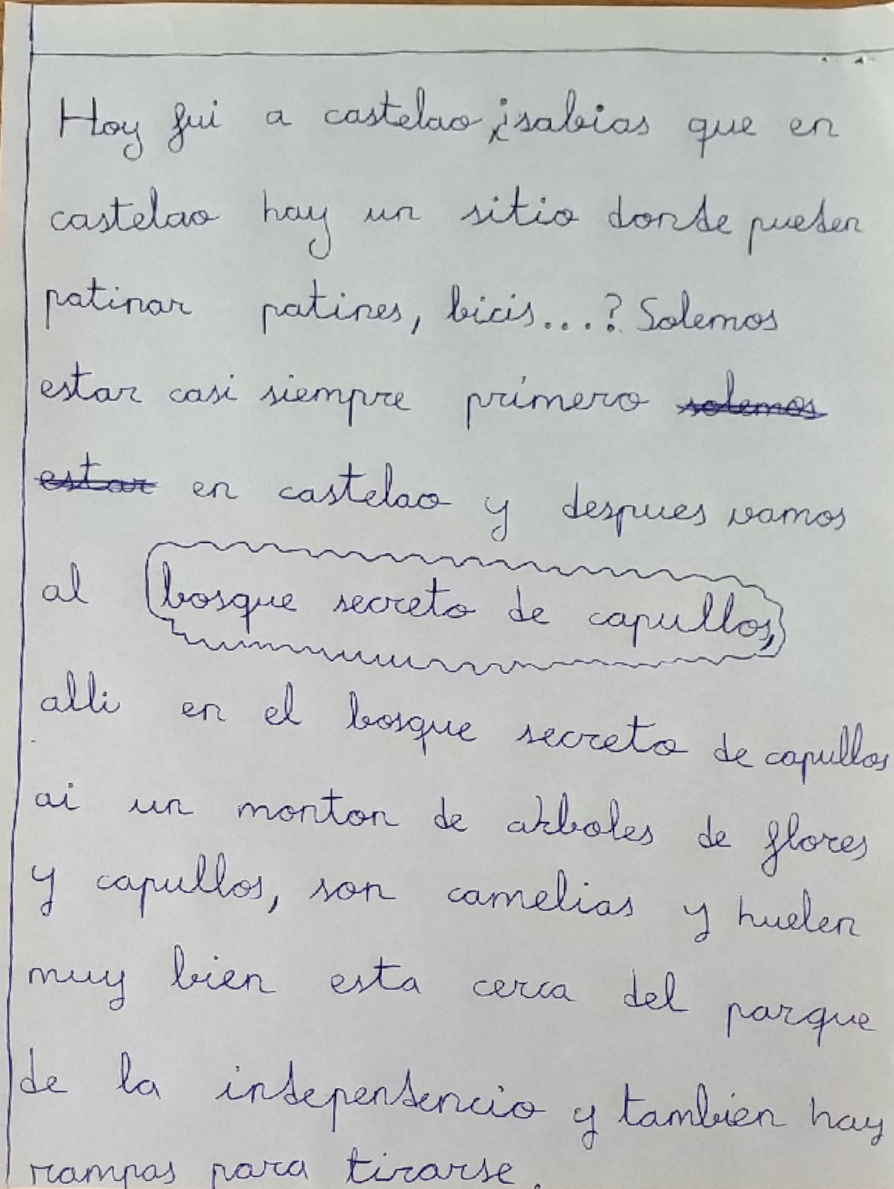 Hoy fui a castelao, ¿sabias que en
castelao hay un sitio donde pueden
patinar patines, bicis...? Solemos
estar casi siempre primero solemos
estar en castelao y despues vamos
al bosque secreto de capullos,
alli en el bosque secreto de capullos
ai un monton de arboles de flores
y capullos, son camelias y huelen
muy bien esta cerca del parque
de la independencio y tambien hay
rampas para tirarse.